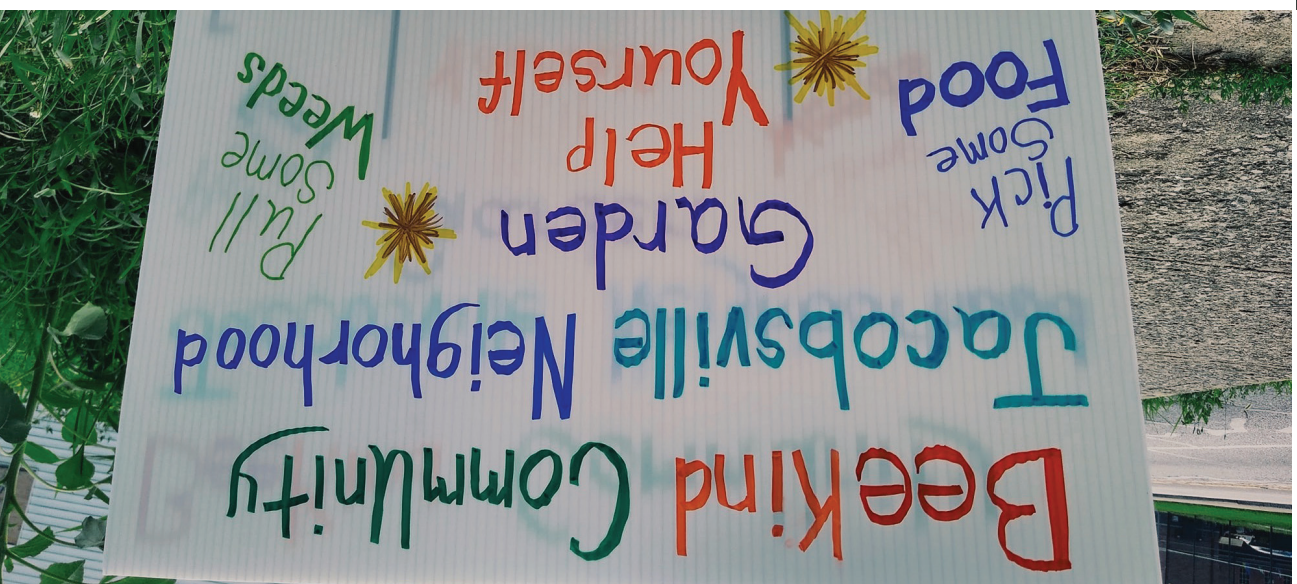 BeeKind CommUnity
Jacobsville Neighorhood
Garden
Pick
Some
Food
Help
Yourself
Pull
Some
Weeds